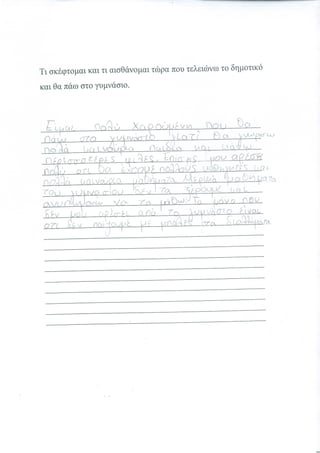 Τι σκέφτομαι και τι αισθάνομαι τώρα που τελειώνω το δημοτικό
και θα πάω στο γυμνάσιο.
Είμαι πολύ χαρούμενη που θα
πάω στο γυμνάσιο γιατί θα γνωρίσω
πολά καινούρια παιδιά και κάνω
περισσότερες φίλες. Επίσης μου αρέσει
πολύ οτι θα έχουμε πολλούς καθηγητές και
πολλά καινούρια μαθήματα. Μερικά μαθήματα
του γυμνασίου δεν τα ξέρουμε και
να τα μάθω. Το μόνο που
δεν μου αρέσει από το γυμνάσιο είναι
οτι δεν παίζουμε με μπάλες τα διαλήματα